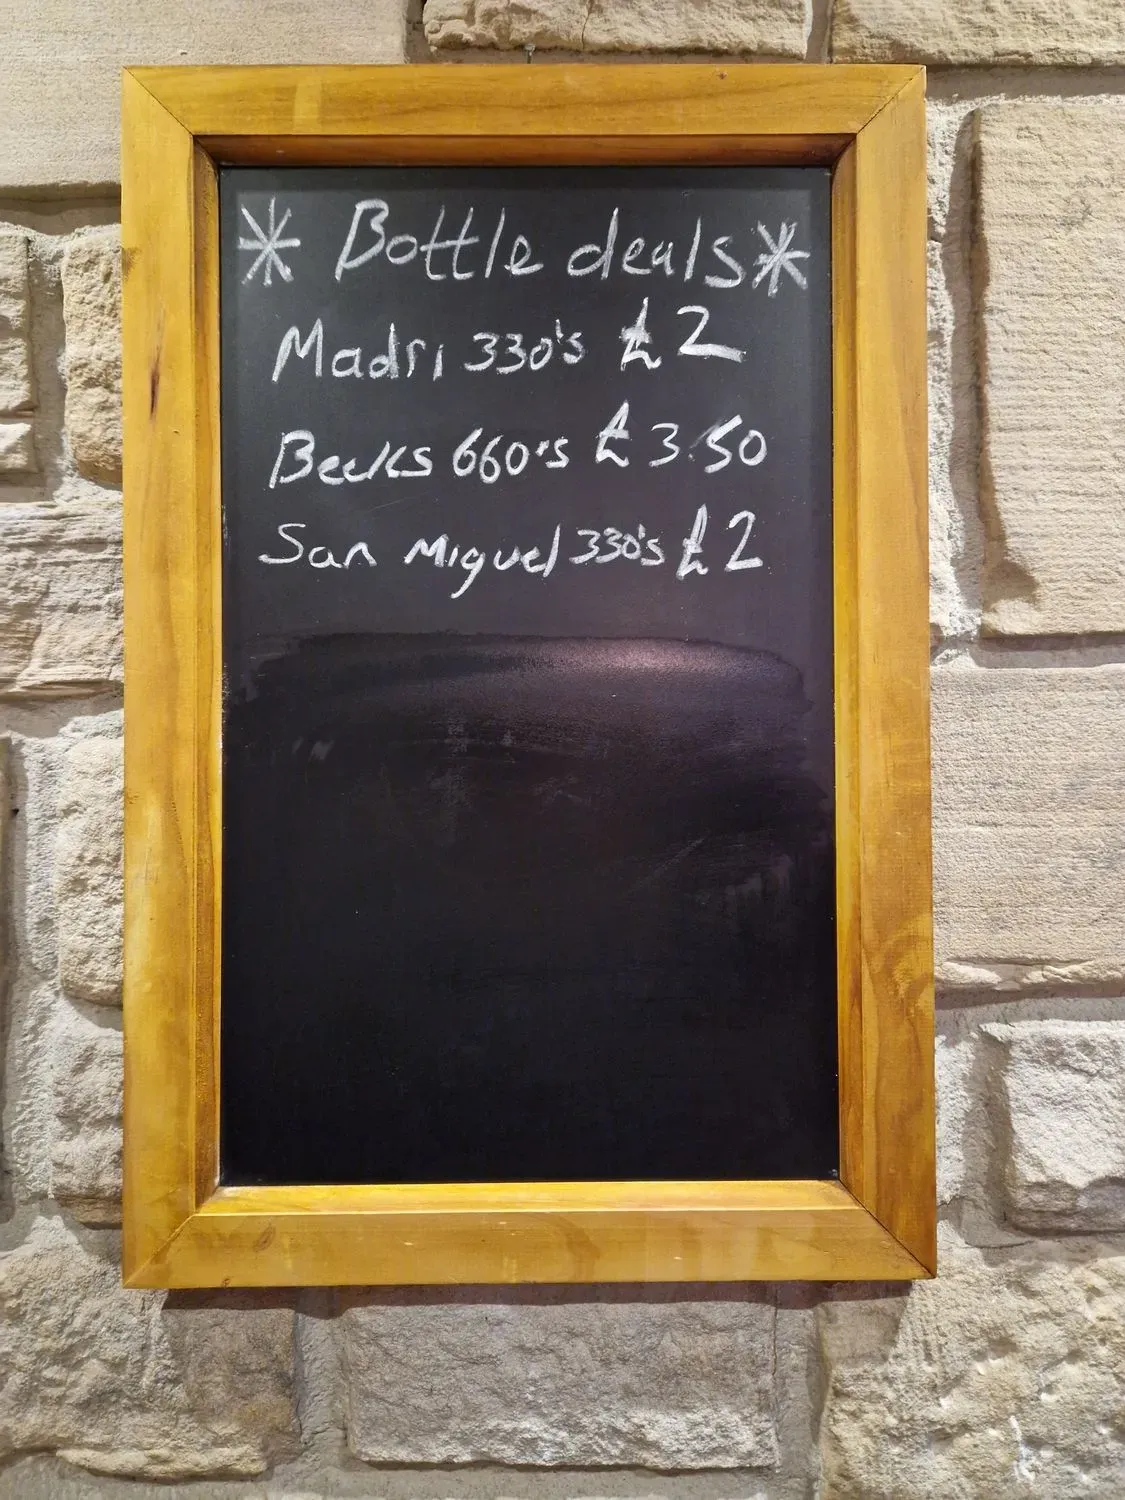 * Bottle deals *
Madri 330's £2
Becks 660's £3.50
San Miguel 330's £2